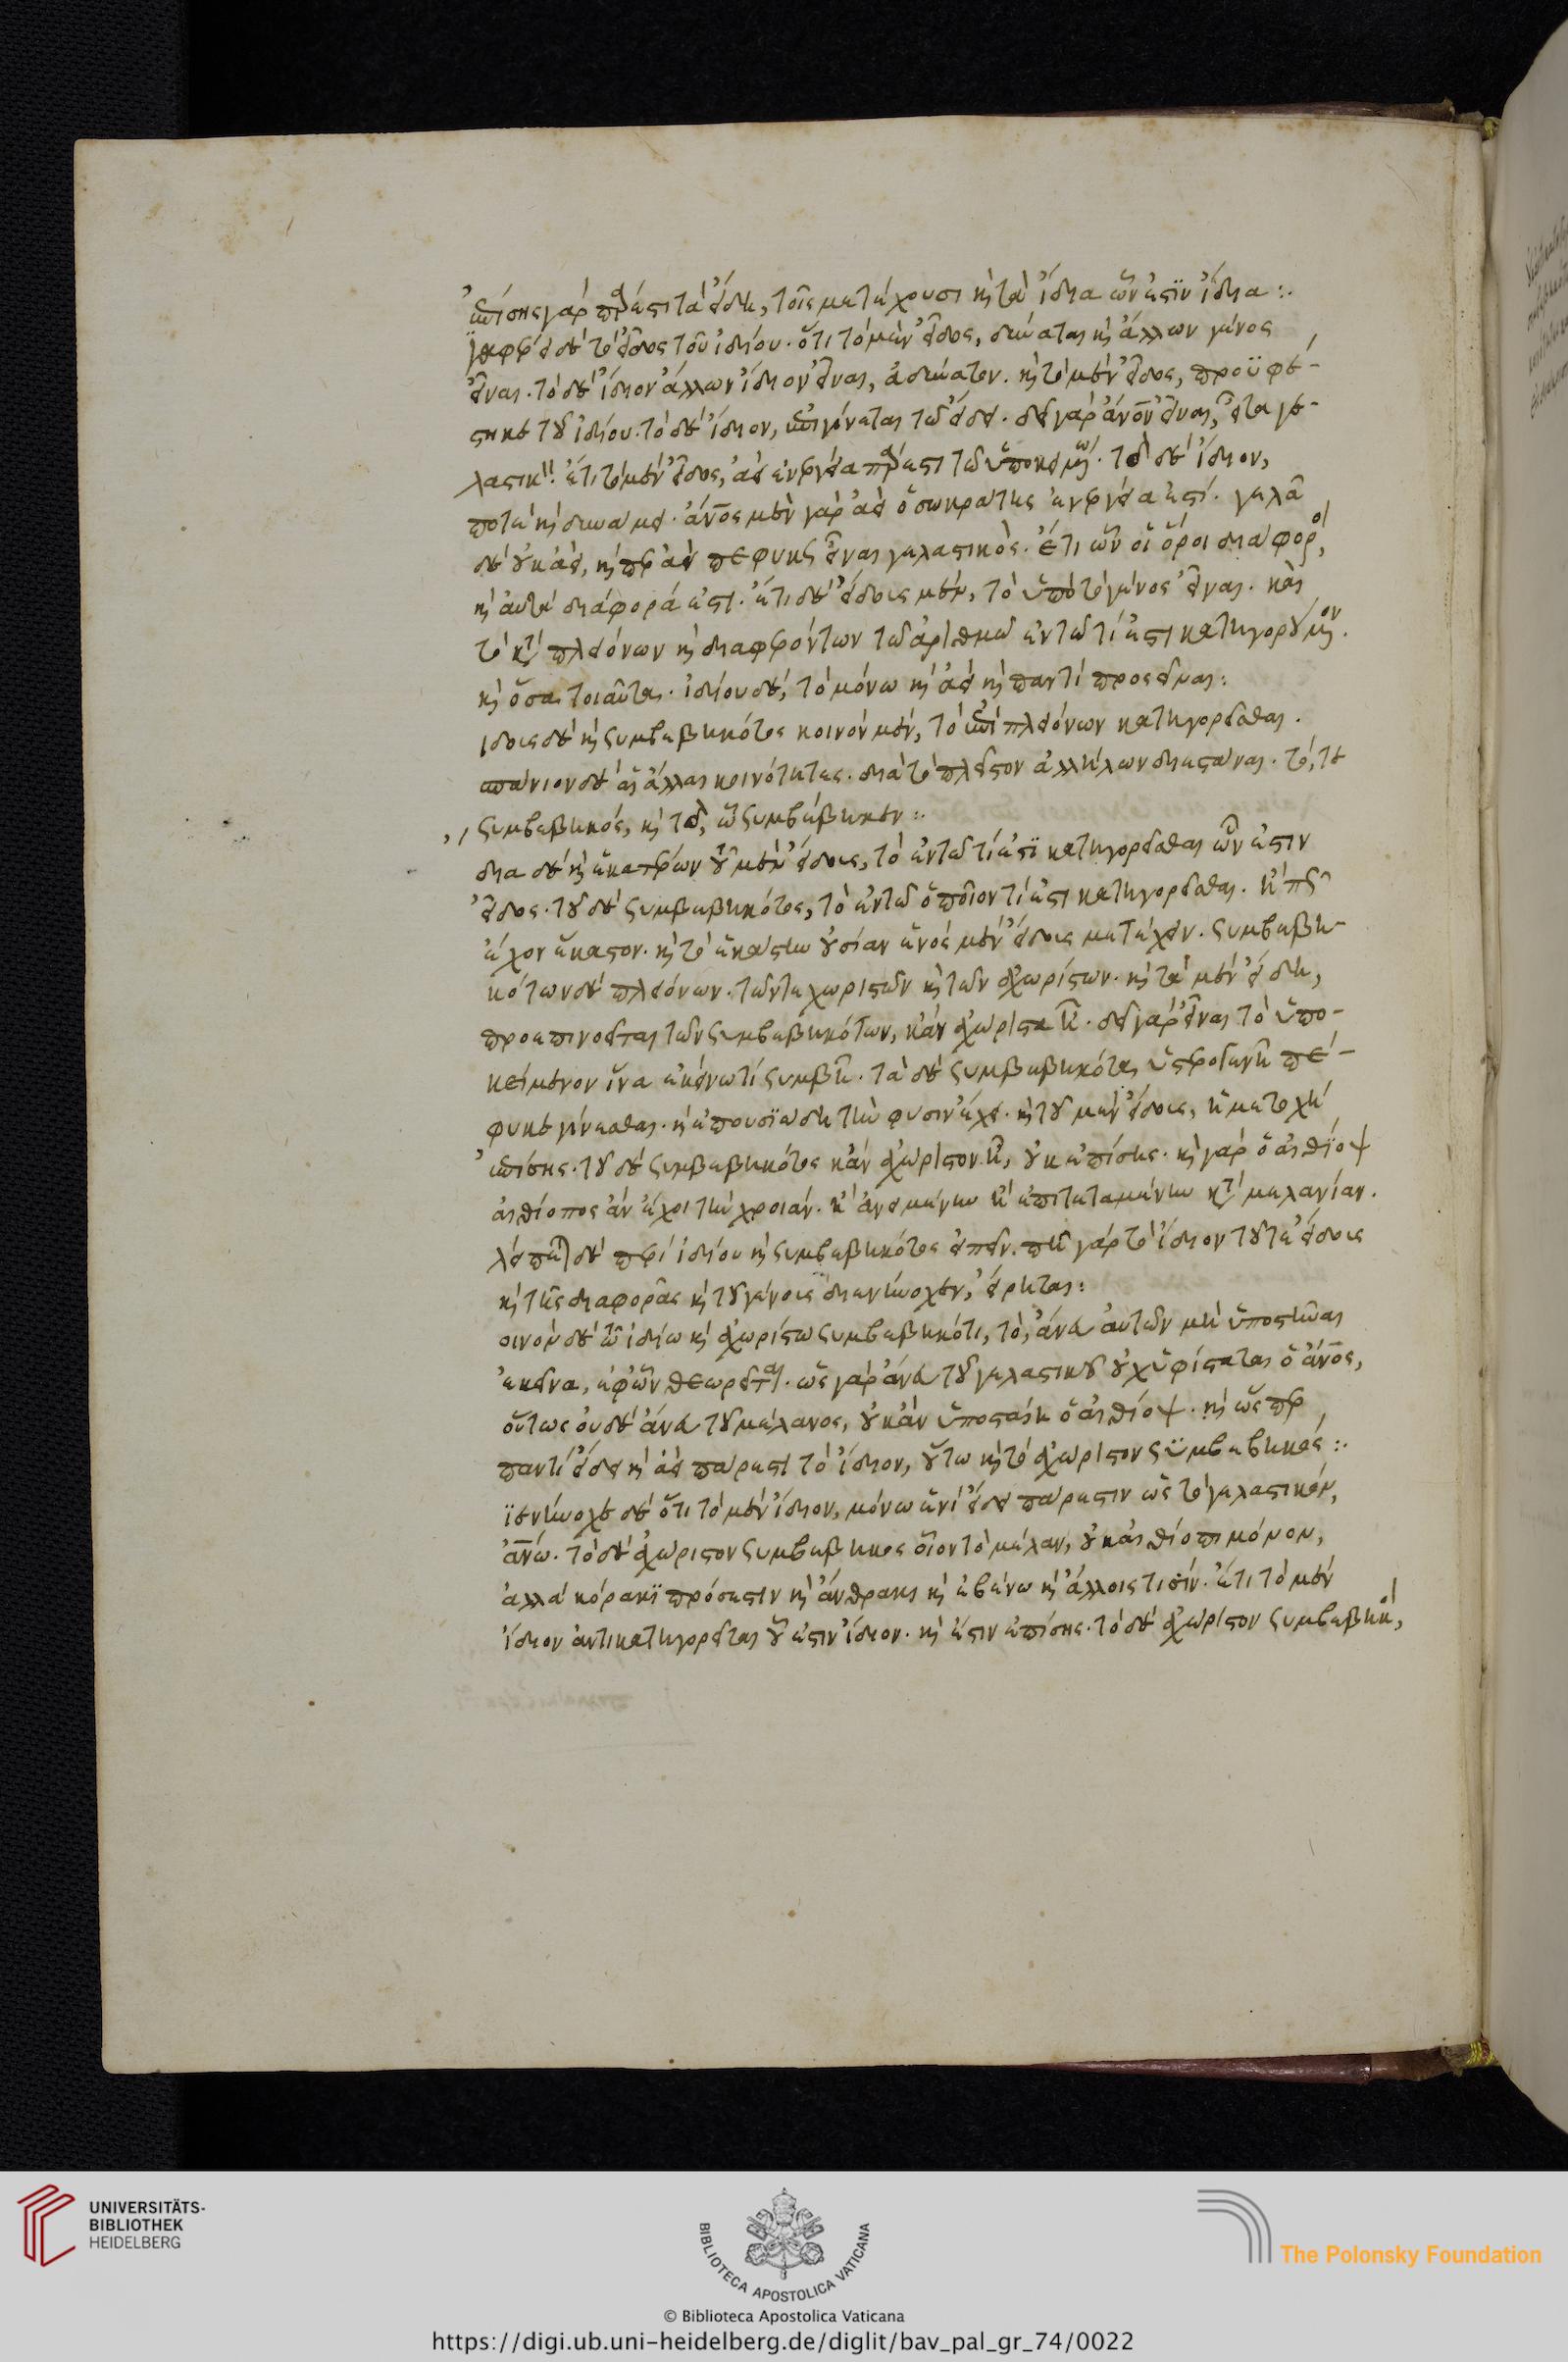 ἐπίσης γὰρ πάρεστι τὰ εἴδη, τοῖς μετέχουσι καὶ τὰ ἴδια ὧν ἐστὶν ἴδια:
διαφέρει δὲ τὸ εἶδος τοῦ ἰδίου. ὅτι τὸ μὲν εἶδος, δύναται καὶ ἄλλων γένος
εἶναι. τὸ δὲ ἴδιον ἄλλων ἴδιον εἶναι, ἀδύνατον. καὶ τὸ μὲν εἶδος, προϋφέ-
στηκε τοῦ ἰδίου. τὸ δὲ ἴδιον, ἐπιγίνεται τῷ εἴδει. δεῖ γὰρ ἄνον εἶναι, εἶτα γε-
λαστικόν. ἔτι τὸ μὲν εἶδος, ἀεὶ ἐνεργείᾳ πάρεστι τῷ ὑποκειμένῳ. τὸ δὲ ἴδιον,
ποτὲ καὶ δυνάμει. ἄνος μὲν γὰρ ἀεὶ ὁ σωκράτης ἐνεργείᾳ ἐστί. γελᾷ
δὲ οὐκ ἀεί, καίπερ ἀεὶ πέφυκε εἶναι γελαστικός. ἔτι ὧν οἱ ὅροι διάφοροι,
καὶ αὐτὰ διάφορά ἐστι. ἔτι δὲ εἴδους μέν, τὸ ὑπὸ τὸ γένος εἶναι. καὶ
τὸ κατὰ πλειόνων καὶ διαφερόντων τῷ ἀριθμῷ ἐν τῷ τί ἐστι κατηγορούμενον.
καὶ ὅσα τοιαῦτα. ἰδίου δέ, τὸ μόνῳ καὶ ἀεὶ καὶ παντὶ προσεῖναι:
ἴδους δὲ καὶ συμβεβηκότος κοινὸν μέν, τὸ ἐπὶ πλειόνων κατηγορεῖσθαι.
σπάνιον δὲ αἱ ἄλλαι κοινότητες. διὰ τὸ πλεῖστον ἀλλήλων διεστάναι. τό, τε
συμβεβηκός, καὶ τὸ, ᾧ συμβέβηκεν:
δια δὲ καὶ ἑκατέρων τοῦ μὲν εἴδους, τὸ ἐν τῷ τί ἐστι κατηγορεῖσθαι ὧν ἐστιν
εἶδος. τοῦ δὲ συμβεβηκότος, τὸ ἐν τῷ ὁποῖον τί ἐστι κατηγορεῖσθαι. ἢ πῶς
ἔχον ἕκαστον. καὶ τὸ ἑκάστην οὐσίαν ἑνὸς μὲν εἴδους μετέχειν. συμβεβη-
κότων δὲ πλειόνων. τῶν τε χωριστῶν καὶ τῶν ἀχωρίστων. καὶ τὰ μὲν εἴδη,
προεπινοεῖται τῶν συμβεβηκότων, κἂν ἀχώριστα ᾖ. δεῖ γὰρ εἶναι τὸ ὑπο-
κείμενον ἵνα ἐκείνῳ τί συμβῇ. τὰ δὲ συμβεβηκότα, ὑστερογενῆ πέ-
φυκε γίνεσθαι. καὶ ἐπουσιώδη τὴν φύσιν ἔχει. καὶ τοῦ μὲν εἴδους, ἡ μετοχὴ
ἐπίσης. τοῦ δὲ συμβεβηκότος κἂν ἀχώριστον ᾖ, οὐκ ἐπίσης. καὶ γὰρ ὁ αἰθίοψ
αἰθίοπος ἂν ἔχοι τὴν χροιάν. ἢ ἀνειμένην ἢ ἐπιτεταμένην κατὰ μελανίαν.
λείπεται δὲ περὶ ἰδίου καὶ συμβεβηκότος εἰπεῖν. πῇ γὰρ τὸ ἴδιον τοῦ τε εἴδους
καὶ τῆς διαφορᾶς καὶ τοῦ γένους διενήνοχεν, εἴρηται:
οινὸν δὲ τῷ ἰδίῳ καὶ ἀχωρίστῳ συμβεβηκότι, τὸ, ἄνευ αὐτῶν μὴ ὑποστῆναι
ἐκεῖνα, ἐφ᾽ ὧν θεωρεῖται. ὡς γὰρ ἄνευ τοῦ γελαστικοῦ οὐχ ὑφίσταται ὁ ἄνος,
οὕτως οὐδὲ ἄνευ τοῦ μέλανος, οὐκ ἂν ὑποσταίη ὁ αἰθίοψ. καὶ ὥσπερ
παντὶ εἴδει καὶ ἀεὶ πάρεστι τὸ ἴδιον, οὕτω καὶ τὸ ἀχώριστον συμβεβηκός:
ιενήνοχε δὲ ὅτι τὸ μὲν ἴδιον, μόνῳ ἑνὶ εἴδει πάρεστιν ὡς τὸ γελαστικόν,
ἀνῳ. τὸ δὲ ἀχώριστον συμβεβηκὸς οἷον τὸ μέλαν, οὐκ αἰθίοπι μόνον,
ἀλλὰ κόρακι πρόσεστιν καὶ ἄνθρακι καὶ ἐβένῳ καὶ ἄλλοις τισίν. ἔτι τὸ μὲν
ἴδιον ἀντικατηγορεῖται οὗ ἐστιν ἴδιον. καὶ ἔστιν ἐπίσης. τὸ δὲ ἀχώριστον συμβεβηκός,
UNIVERSITÄTS-
BIBLIOTHEK
HEIDELBERG
BIBLIOTECA APOSTOLICA VATICANA
The Polonsky Foundation
© Biblioteca Apostolica Vaticana
https://digi.ub.uni-heidelberg.de/diglit/bav_pal_gr_74/0022